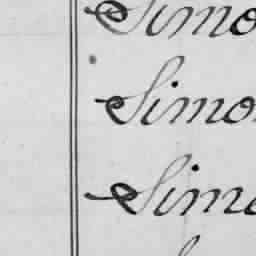 Simo
Simo
Sim